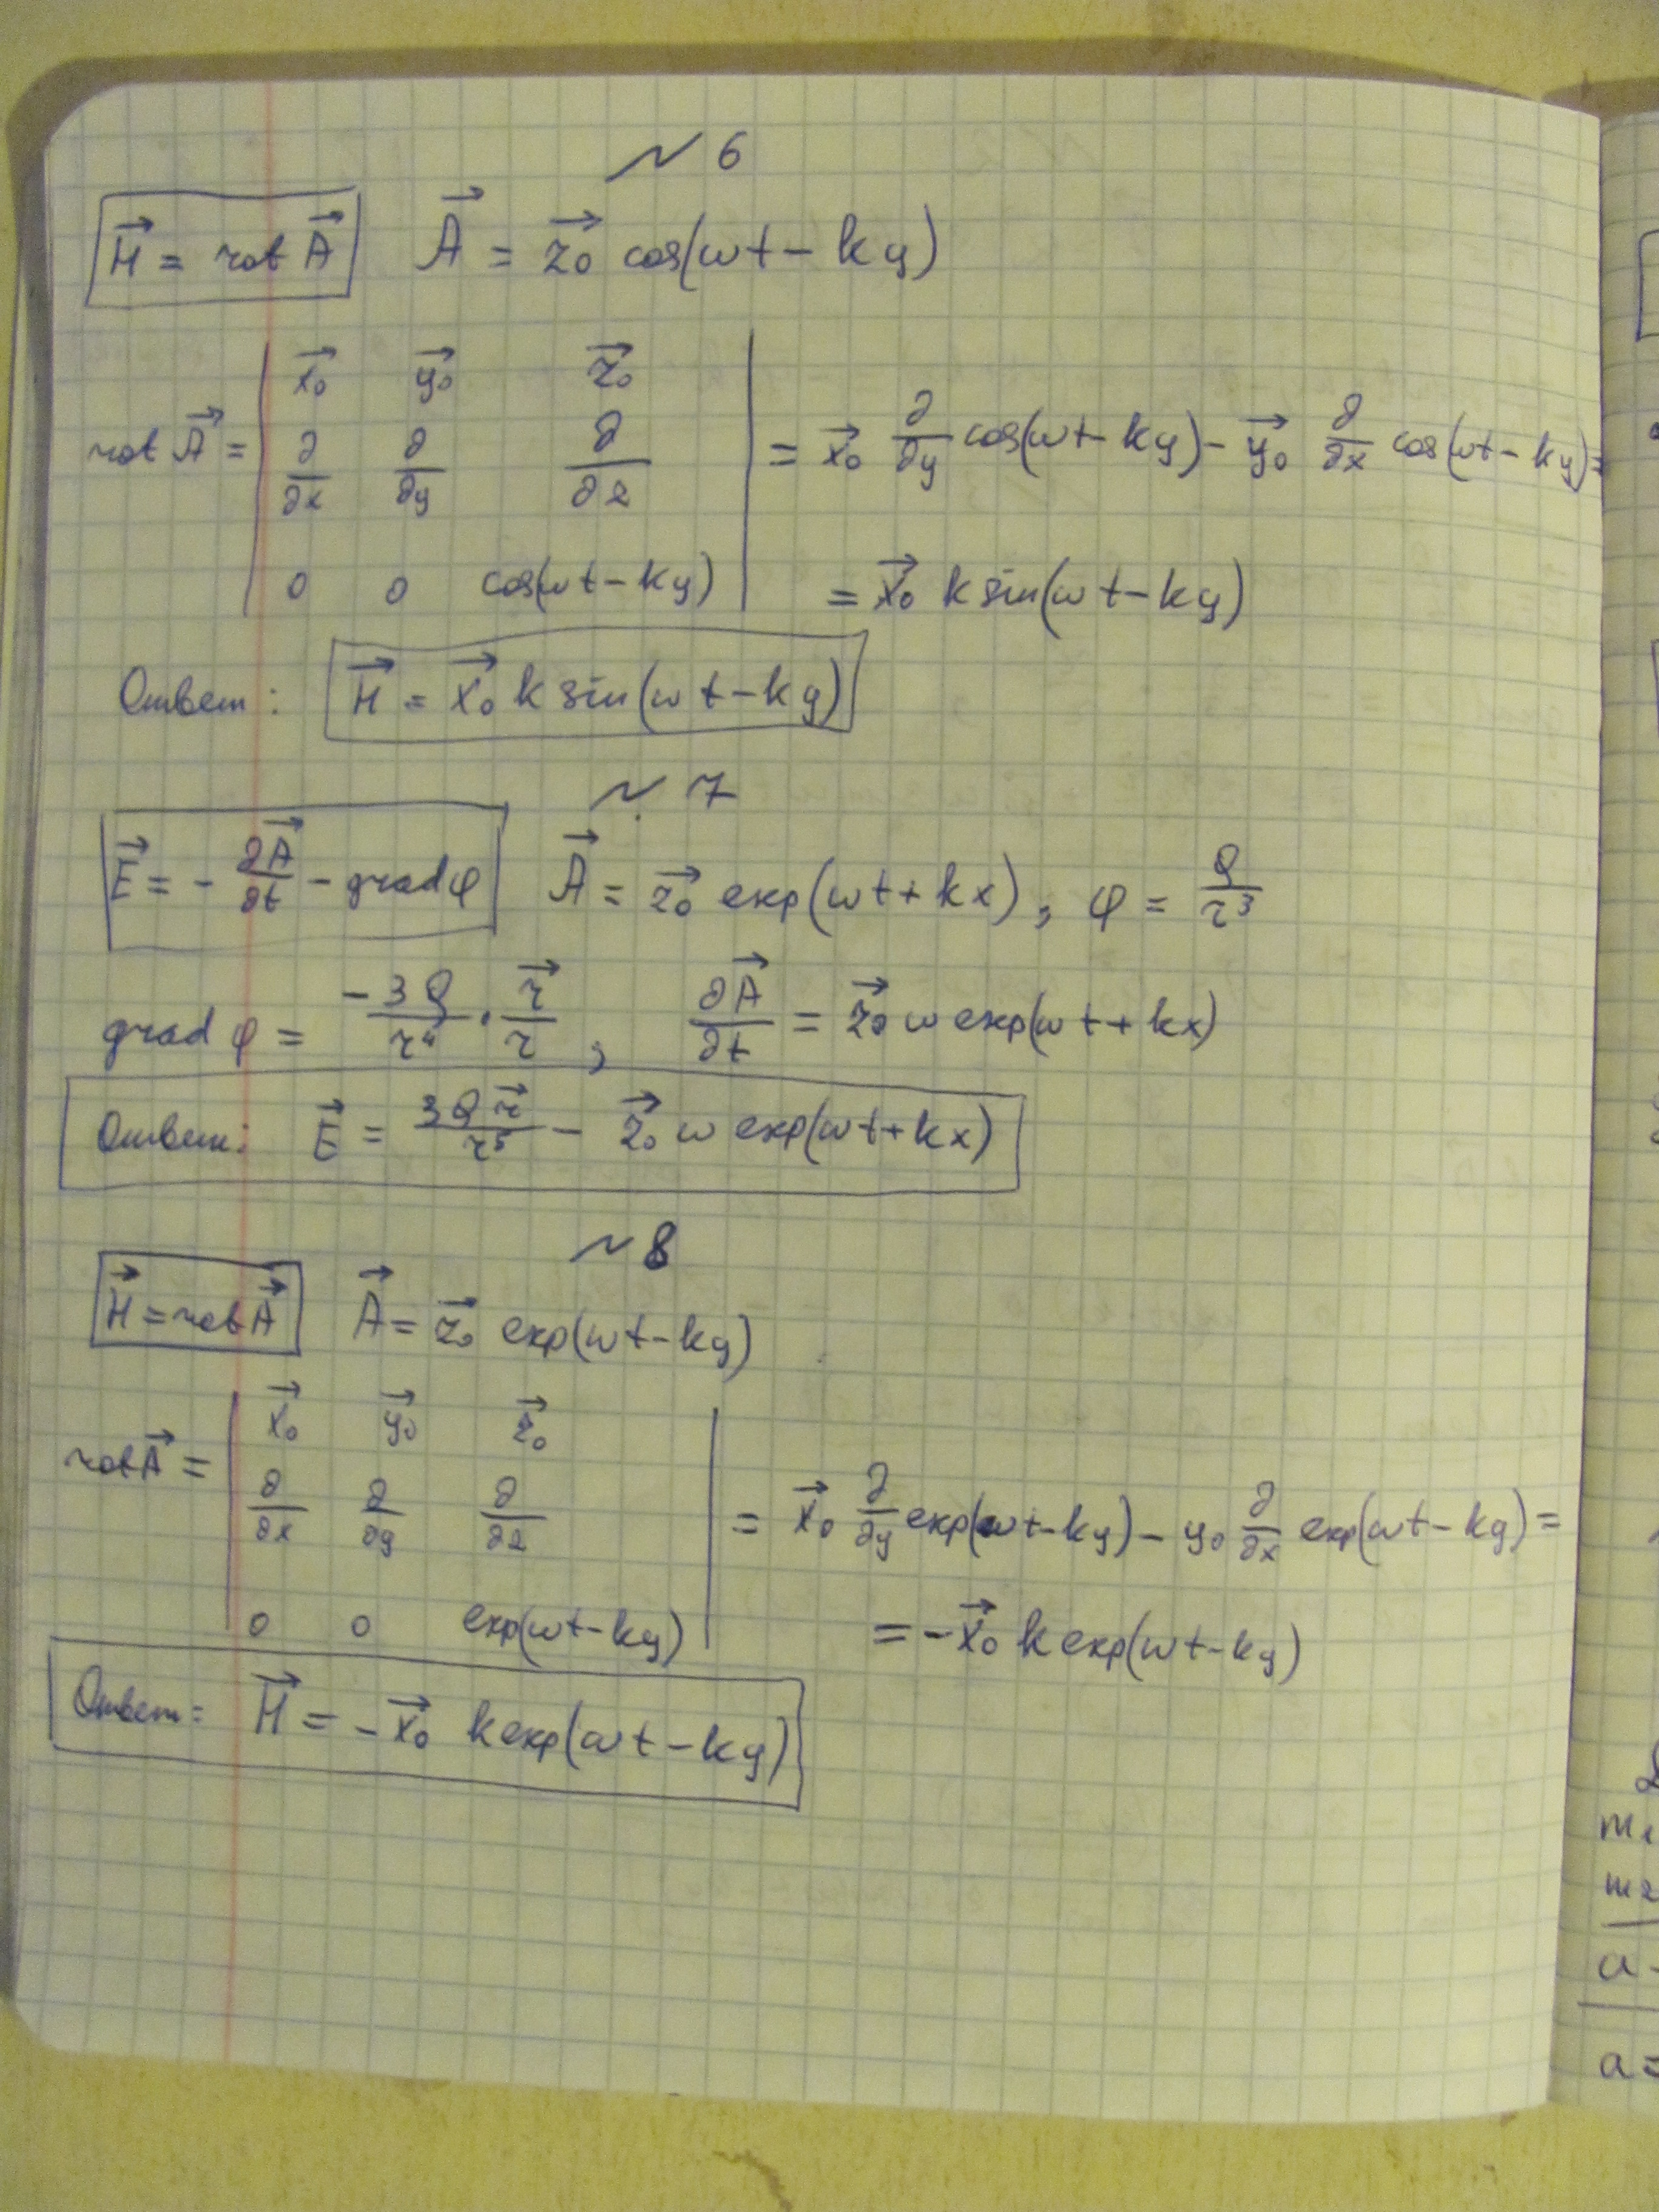 ~ 6
H⃗ = rot A⃗   A⃗ = z₀⃗ cos(ωt - ky)
rot A⃗ = | x₀⃗ y₀⃗ z₀⃗ |
| ∂/∂x ∂/∂y ∂/∂z | = x₀⃗ ∂/∂y cos(ωt - ky) - y₀⃗ ∂/∂x cos(ωt - ky) =
| 0 0 cos(ωt - ky) | = x₀⃗ k sin(ωt - ky)
Ответ: H⃗ = x₀⃗ k sin(ωt - ky)
~ 7
E⃗ = - ∂A⃗/∂t - grad φ   A⃗ = z₀⃗ exp(ωt + kx), φ = Q/r³
grad φ = -3Q/r⁴ · r⃗/r, ∂A⃗/∂t = z₀⃗ ω exp(ωt + kx)
Ответ: E⃗ = 3Q r⃗/r⁵ - z₀⃗ ω exp(ωt + kx)
~ 8
H⃗ = rot A⃗   A⃗ = z₀⃗ exp(ωt - ky)
rot A⃗ = | x₀⃗ y₀⃗ z₀⃗ |
| ∂/∂x ∂/∂y ∂/∂z | = x₀⃗ ∂/∂y exp(ωt - ky) - y₀ ∂/∂x exp(ωt - ky) =
| 0 0 exp(ωt - ky) | = - x₀⃗ k exp(ωt - ky)
Ответ: H⃗ = - x₀⃗ k exp(ωt - ky)
a =